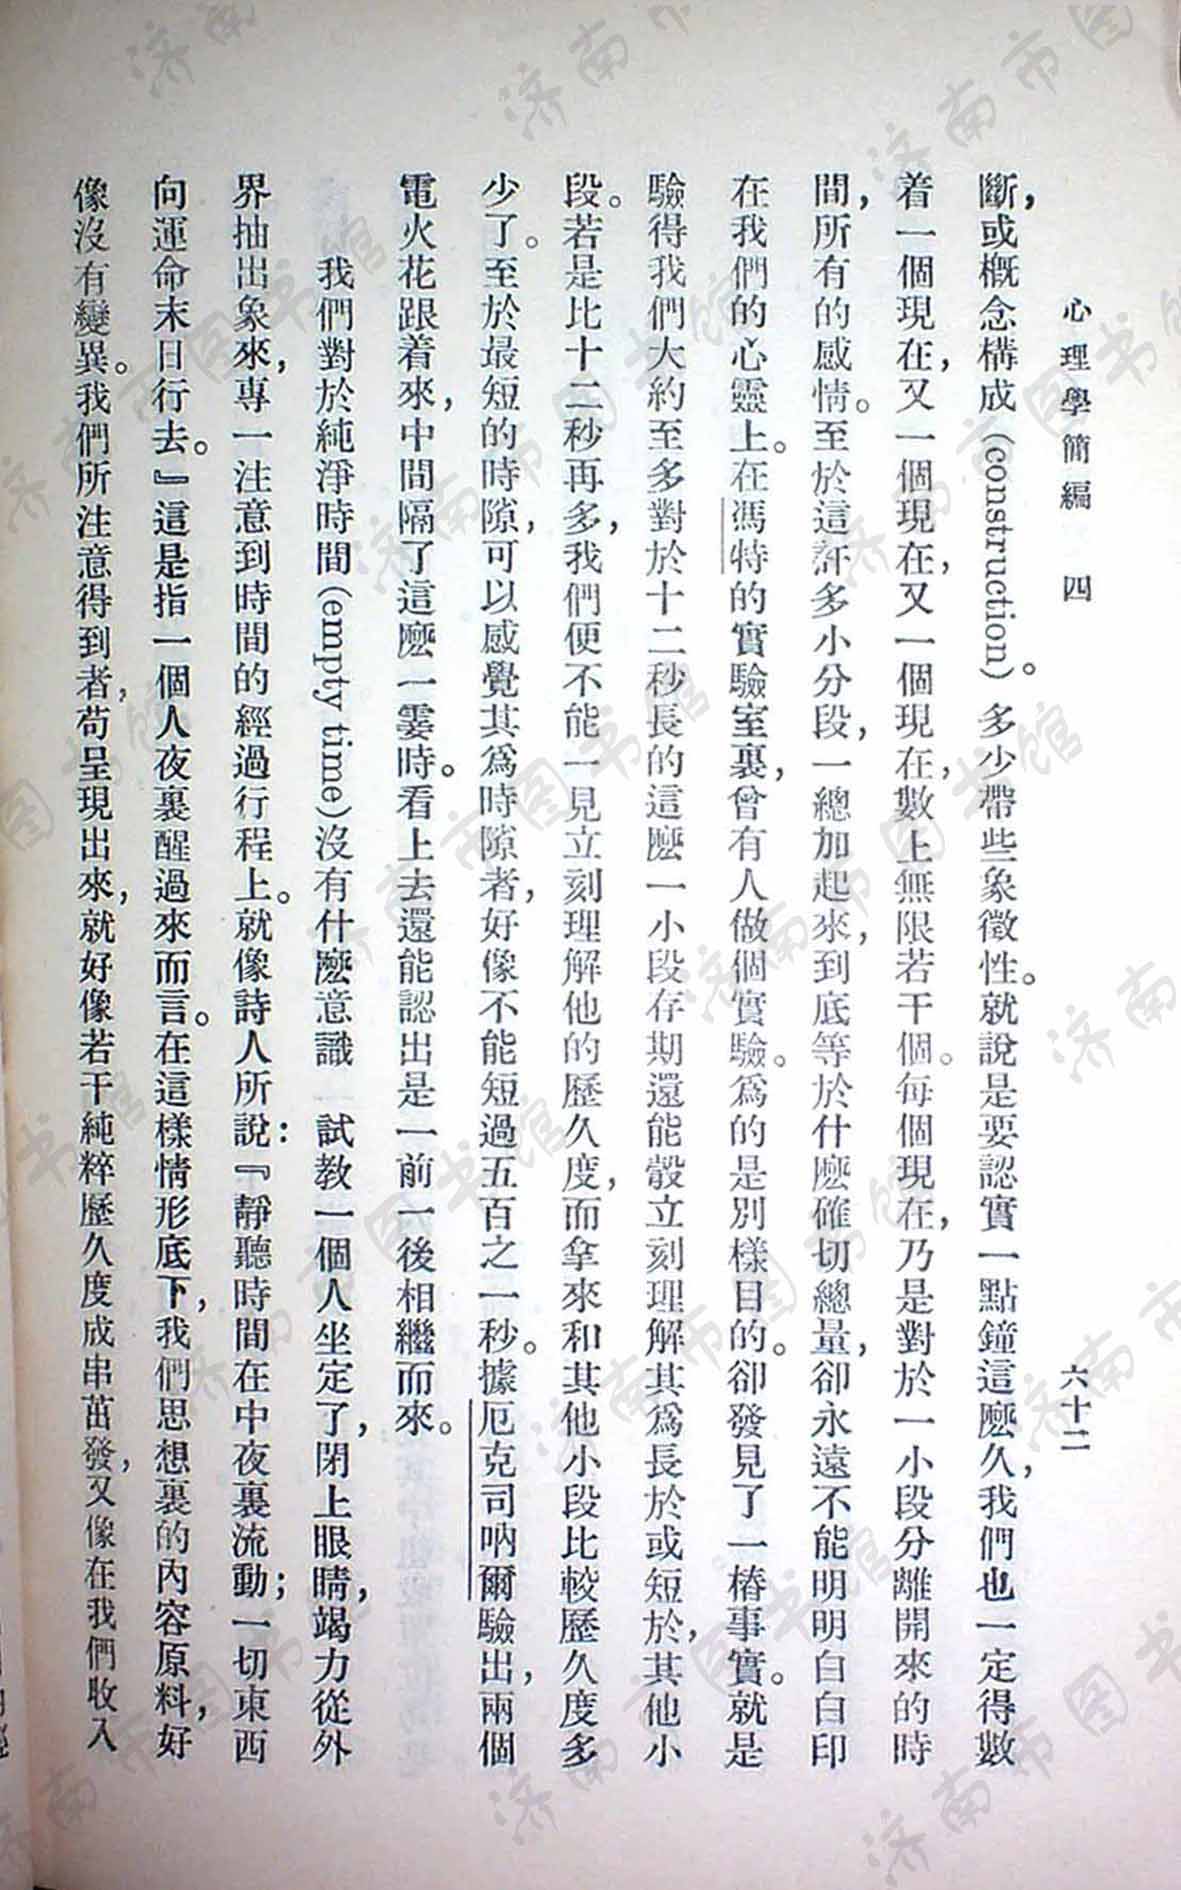 心理學簡編　四　六十二
斷，或概念構成（construction）。多少帶些象徵性。就說是要認實一點鐘這麽久，我們也一定得數
着一個現在，又一個現在，又一個現在，數上無限若干個。每個現在，乃是對於一小段分離開來的時
間，所有的感情。至於這許多小分段，一總加起來，到底等於什麽確切總量，卻永遠不能明明白白印
在我們的心靈上。在馮特的實驗室裏，曾有人做個實驗。爲的是別樣目的。卻發見了一樁事實。就是
驗得我們大約至多對於十二秒長的這麽一小段存期還能彀立刻理解其爲長於或短於，其他小
段。若是比十二秒再多，我們便不能一見立刻理解他的歷久度，而拿來和其他小段比較歷久度多
少了。至於最短的時隙，可以感覺其爲時隙者，好像不能短過五百之一秒。據厄克司吶爾驗出，兩個
電火花跟着來，中間隔了這麽一霎時。看上去還能認出是一前一後相繼而來。
我們對於純淨時間（empty time）沒有什麽意識　試教一個人坐定了，閉上眼睛，竭力從外
界抽出象來，專一注意到時間的經過行程上。就像詩人所說：『靜聽時間在中夜裏流動；一切東西
向運命末日行去。』這是指一個人夜裏醒過來而言。在這樣情形底下，我們思想裏的內容原料，好
像沒有變異。我們所注意得到者，苟呈現出來，就好像若干純粹歷久度成串茁發，又像在我們收入
濟南市图书馆